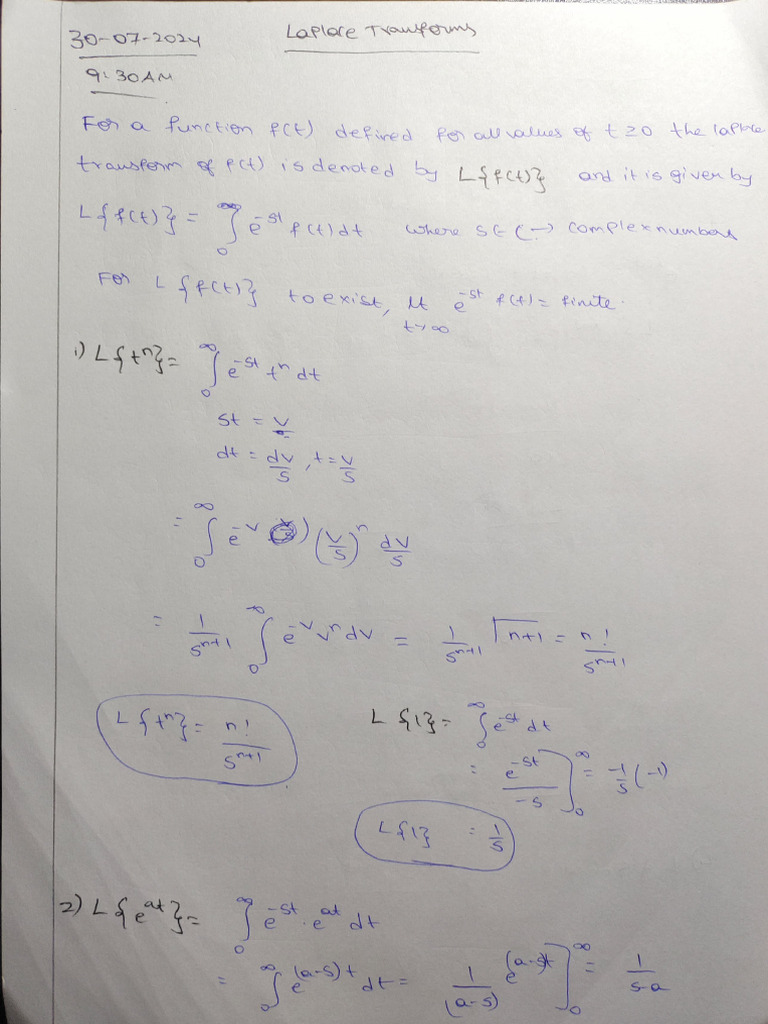 30-07-2024
Laplace Transforms
9:30AM
For a function f(t) defined for all values of t≥0 the laplace
transform of f(t) is denoted by L{f(t)} and it is given by
L{f(t)} = ∫₀^∞ e^{-st} f(t)dt where s∈ C → complex numbers
For L{f(t)} to exist, lt_{t→∞} e^{-st} f(t) = finite.
1) L{tⁿ} = ∫₀^∞ e^{-st} tⁿ dt
st = v
dt = dv/s , t = v/s
= ∫₀^∞ e^{-v} (v/s)ⁿ dv/s
= 1/s^{n+1} ∫₀^∞ e^{-v} vⁿ dv = 1/s^{n+1} Γ(n+1) = n!/s^{n+1}
L{tⁿ} = n!/s^{n+1}
L{1} = ∫₀^∞ e^{-st} dt
= e^{-st}/-s ]₀^∞ = -1/s (-1)
L{1} = 1/s
2) L{e^{at}} = ∫₀^∞ e^{-st} · e^{at} dt
= ∫₀^∞ e^{(a-s)t} dt = 1/(a-s) e^{(a-s)t} ]₀^∞ = 1/s-a